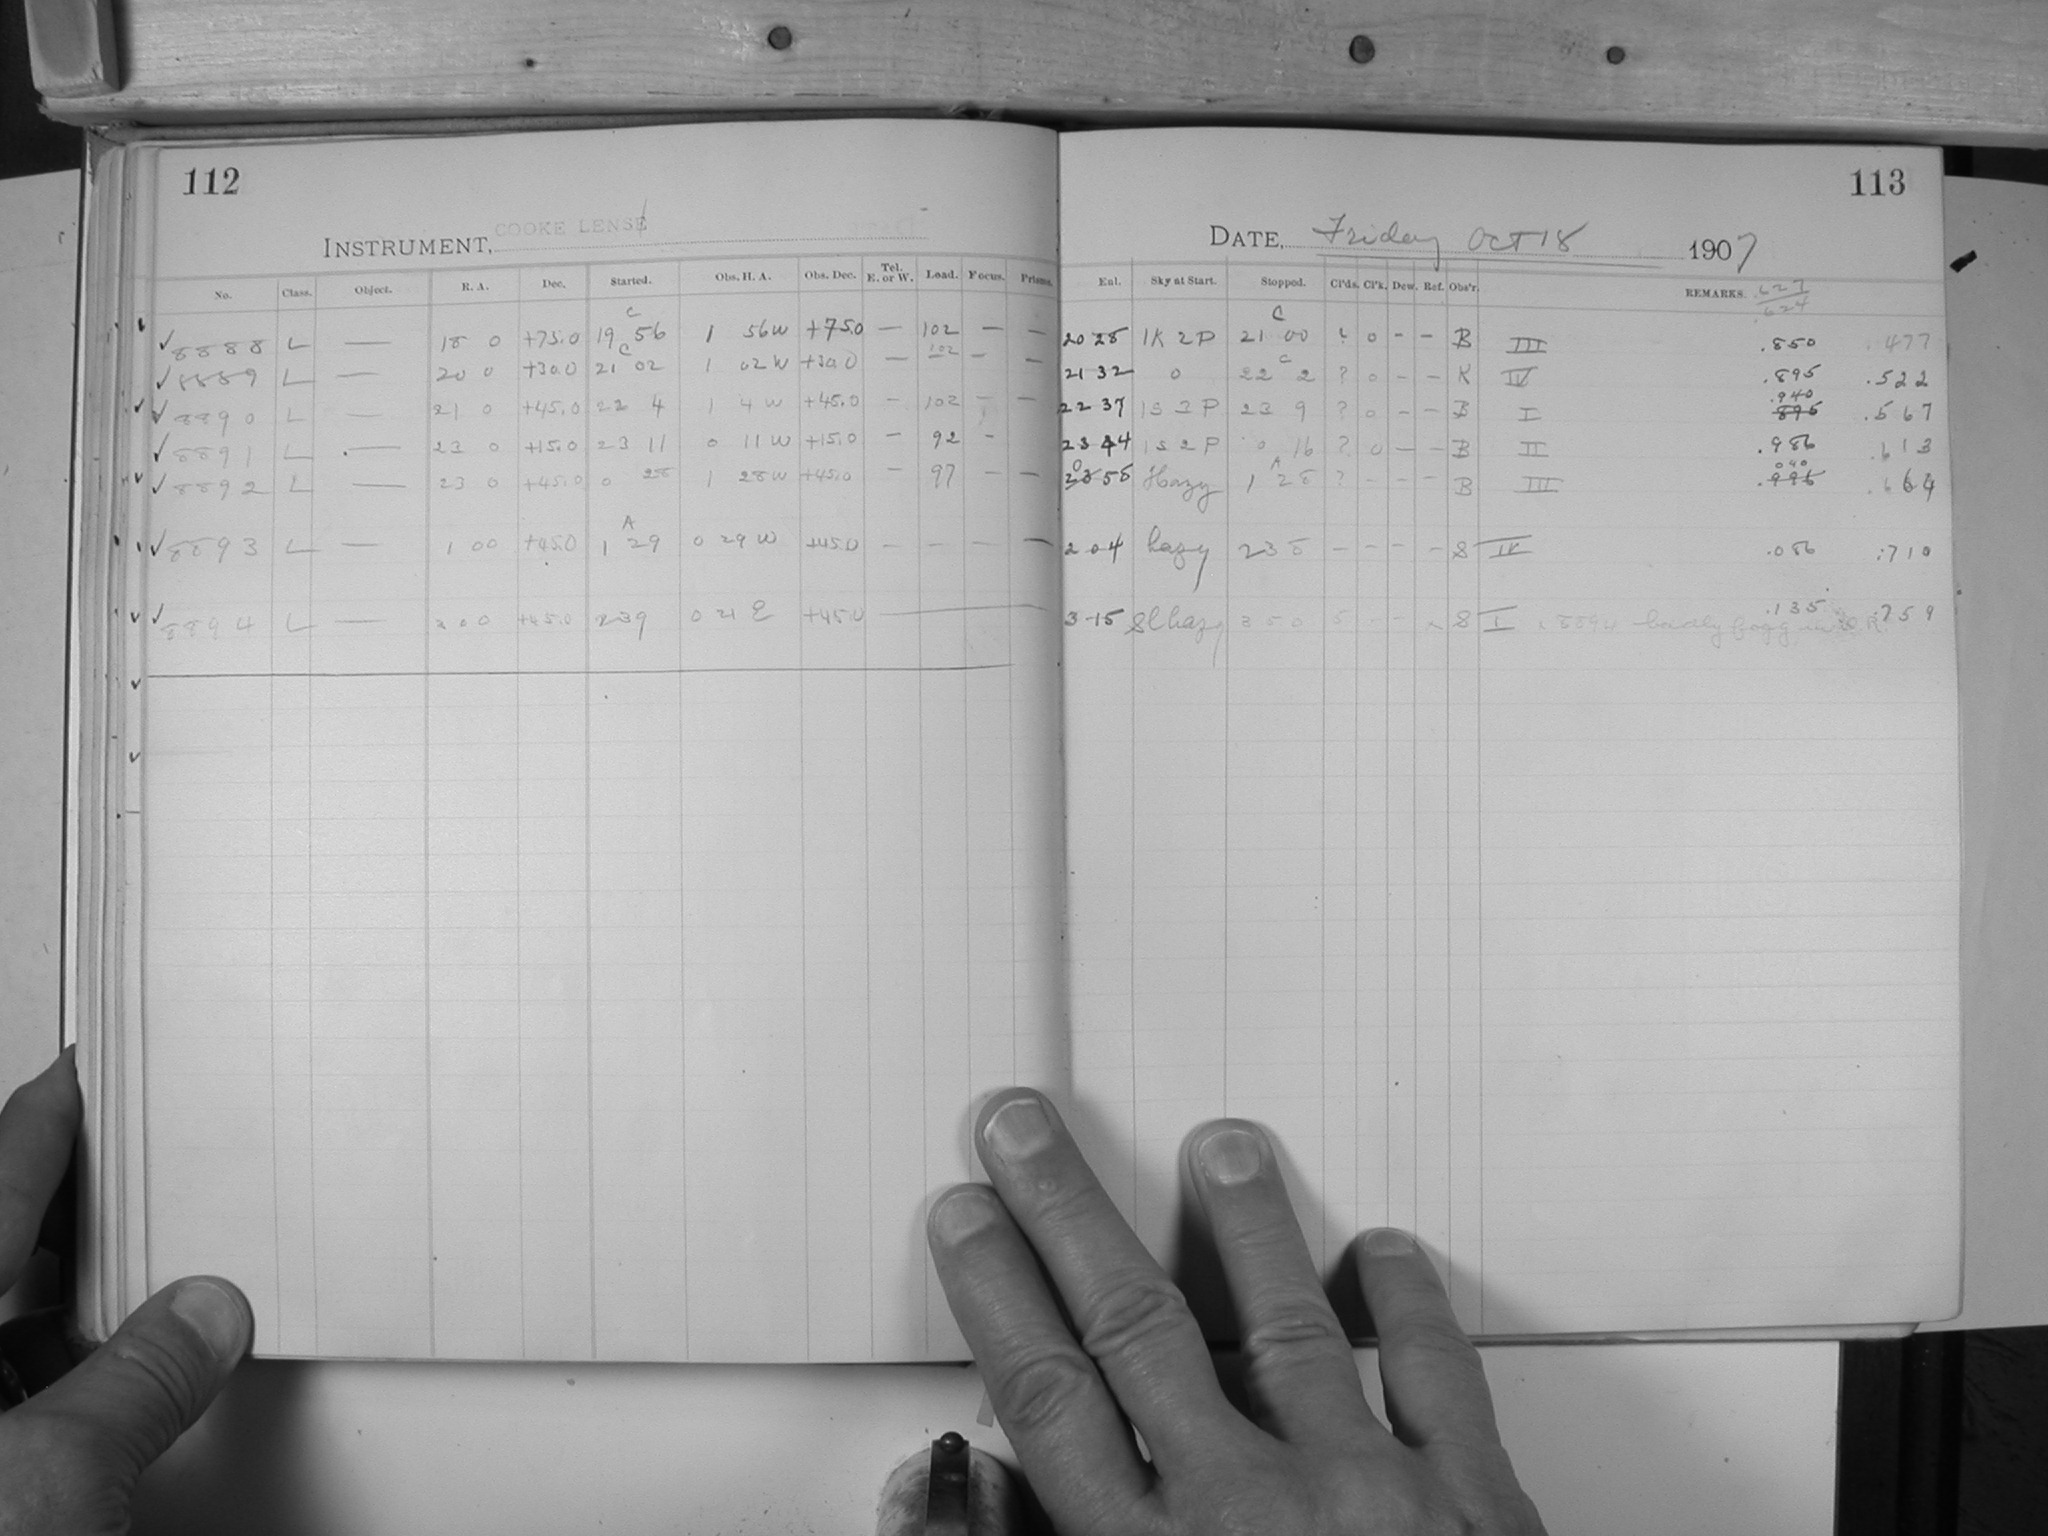 112
COOKE LENSE
INSTRUMENT,
No. Class. Object. R. A. Dec. Started. Obs. H. A. Obs. Dec. Tel. E. or W. Load. Focus. Prisms.
✓ 8888 L — 18 0 +75.0 19 C 56 1 56W +75.0 — 102 — —
✓ 8889 L — 20 0 +30.0 21 C 02 1 02W +30.0 — 102 — —
✓ 8890 L — 21 0 +45.0 22 4 1 4W +45.0 — 102 — —
✓ 8891 L — 23 0 +15.0 23 11 0 11W +15.0 — 92 —
✓ 8892 L — 23 0 +45.0 0 28 1 28W +45.0 — 97 — —
✓ 8893 L — 1 00 +45.0 1 A 29 0 29W +45.0 — — — —
✓ 8894 L — 3 00 +45.0 2 39 0 21 E +45.0 —
113
DATE, Friday OCT 18 1907
Eul. Sky at Start. Stopped. Cl'ds. Cl'k. Dew. Ref. Obs'r. REMARKS. .627
.624
20 28 1K 2P 21 C 00 ? 0 - - B III .850 .477
21 32 0 22 C 2 ? 0 - - K IV .895 .522
.940
22 37 1S 3P 23 9 ? 0 - - B I 895 .567
23 44 1S 2P 0 16 ? 0 - - B II .986 .613
040
0 58 Hazy 1 A 28 ? - - - B III .995 .664
2 04 hazy 2 35 - - - - S IV .086 .710
.135
3 15 Sl hazy 3 50 5 - - x S I x 8894 badly fogg .759